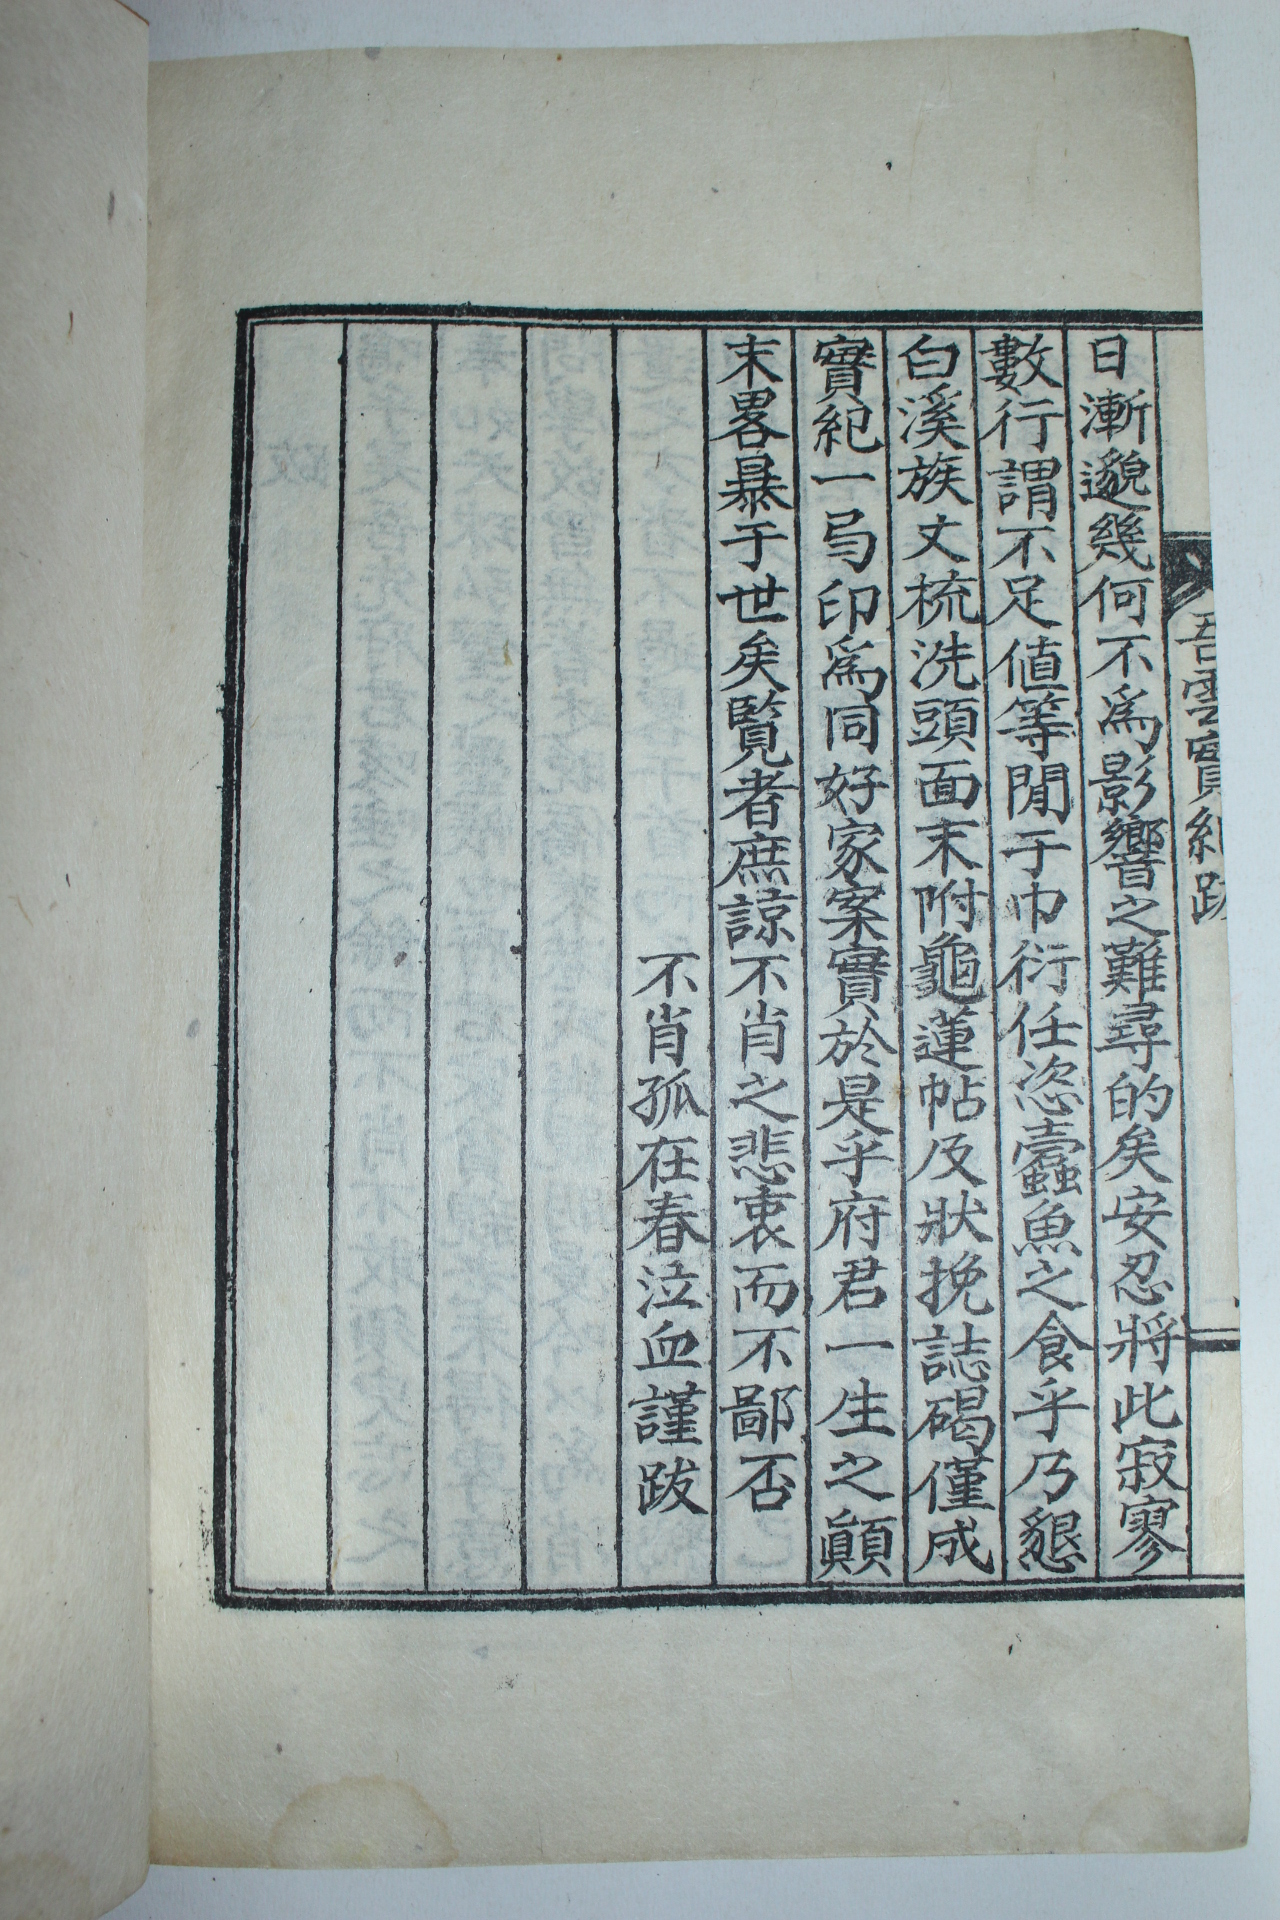 日漸邈幾何不爲影響之難尋的矣安忍將此寂寥
數行謂不足値等閒于巾衍任恣蠹魚之食乎乃懇
白溪族丈梳洗頭面末附龜蓮帖及狀挽誌碣僅成
實紀一弓印爲同好家案實於是乎府君一生之顚
末畧暴于世矣覧者庶諒不肖之悲衷而不鄙否
不肖孤在春泣血謹跋
吾雲實紀跋